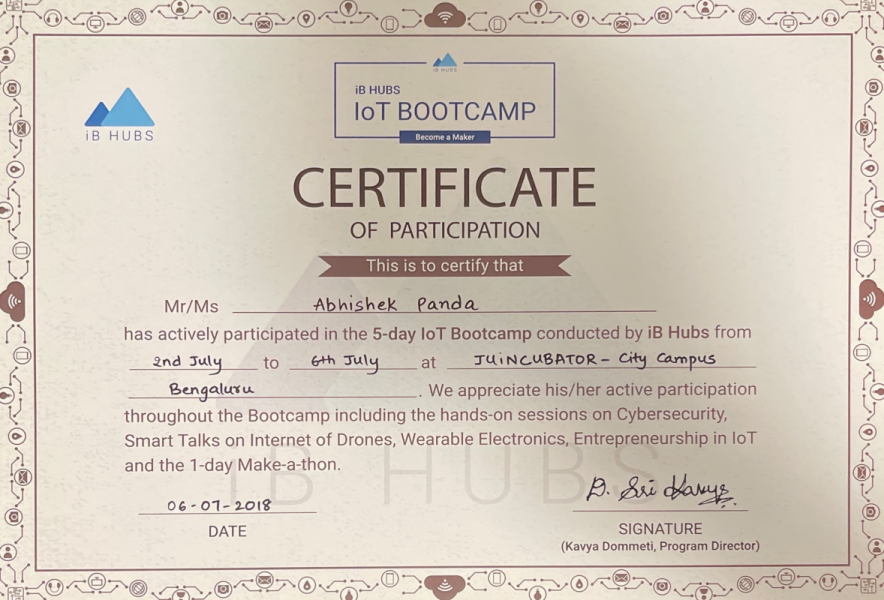 iB HUBS
iB HUBS
iB HUBS
IoT BOOTCAMP
Become a Maker
CERTIFICATE
OF PARTICIPATION
This is to certify that
Mr/Ms Abhishek Panda
has actively participated in the 5-day IoT Bootcamp conducted by iB Hubs from
2nd July to 6th July at JUiNCUBATOR - City Campus
Bengaluru. We appreciate his/her active participation
throughout the Bootcamp including the hands-on sessions on Cybersecurity,
Smart Talks on Internet of Drones, Wearable Electronics, Entrepreneurship in IoT
and the 1-day Make-a-thon.
iB HUBS
D. Sri Kavya
06-07-2018
DATE
SIGNATURE
(Kavya Dommeti, Program Director)